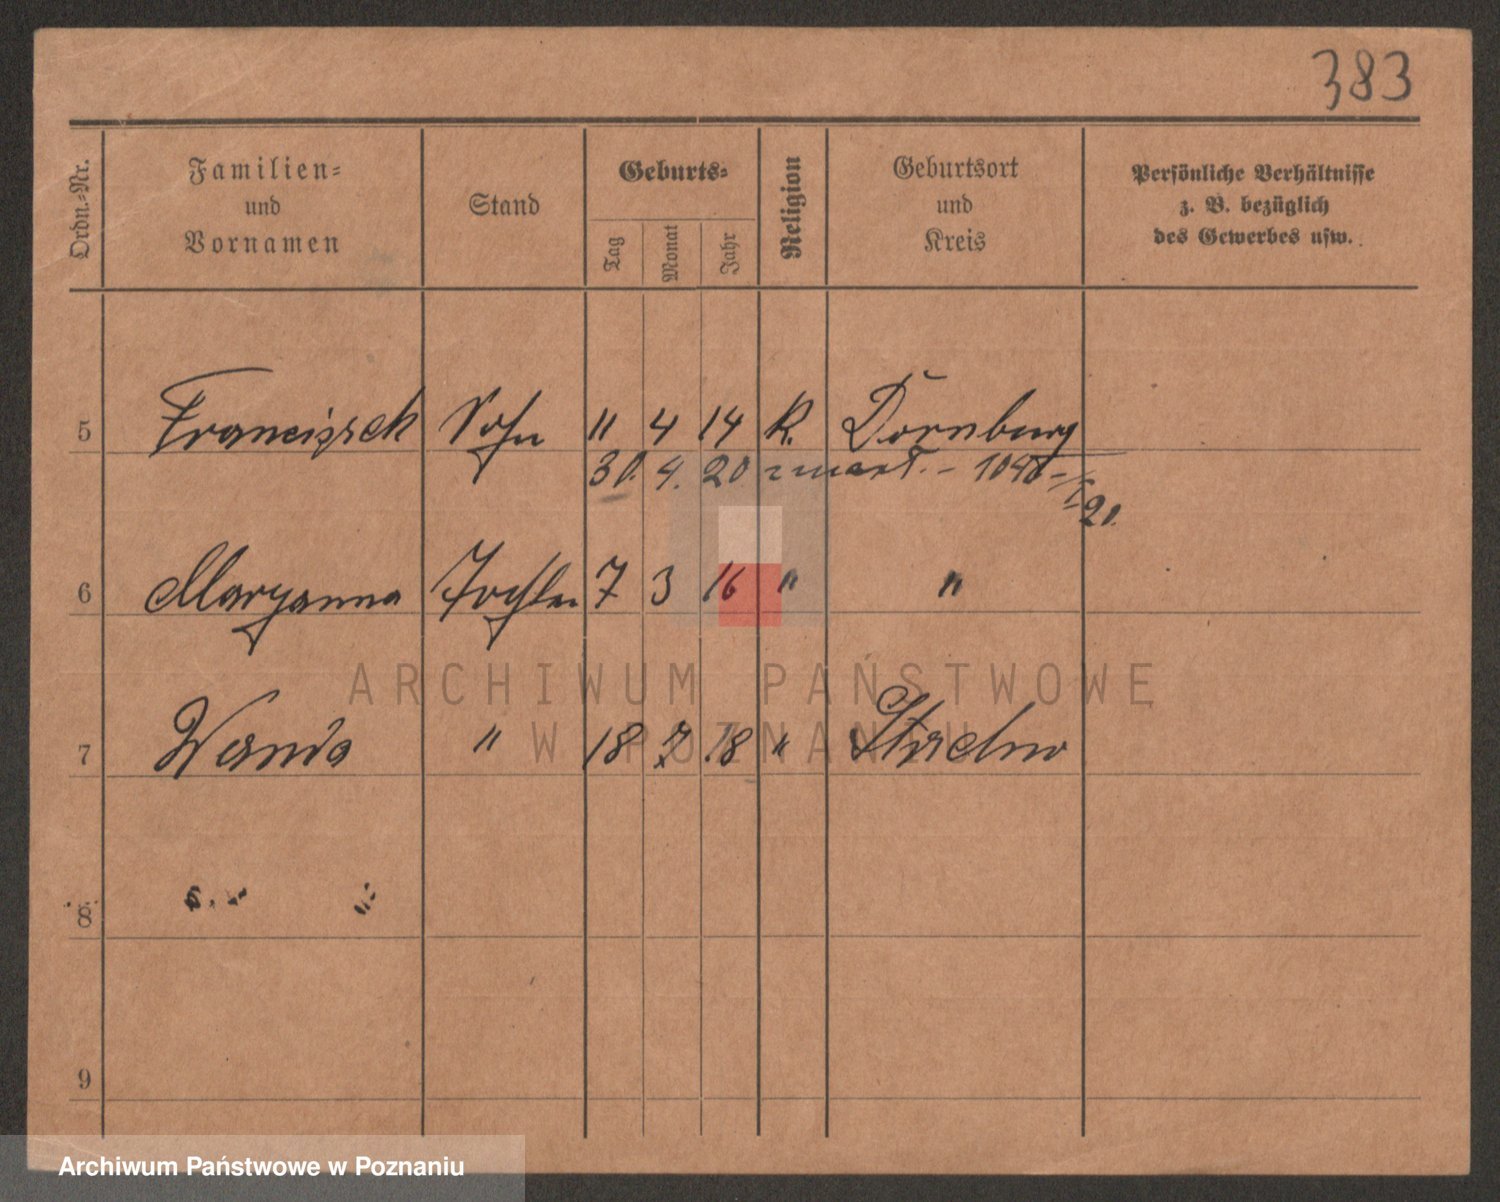 383
Ordn.-Nr.
Familien-
und
Vornamen
Stand
Geburts-
Tag
Monat
Jahr
Religion
Geburtsort
und
Kreis
Persönliche Verhältnisse
z. B. bezüglich
des Gewerbes usw.
5 Franciszek Sohn 11 4 14 K. Dornburg
30. 4. 20 zmarł. -
20.
6 Maryanna Tochter 7 3 16 " "
ARCHIWUM PAŃSTWOWE
W POZNANIU
7 Wanda " 18 7 18 "
8
9
Archiwum Państwowe w Poznaniu